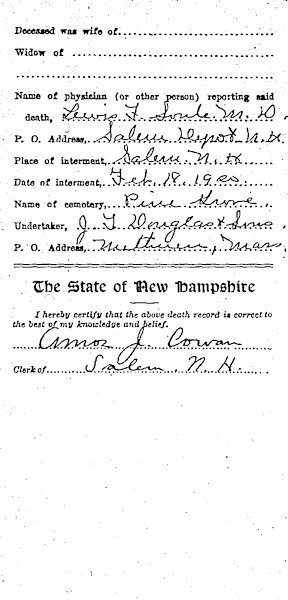 Deceased was wife of
Widow of
Name of physician (or other person) reporting said
death, Lewis F. Soule M. D.
P. O. Address, Salem Depot N.H.
Place of interment, Salem N.H.
Date of interment, Feb. 18. 1920.
Name of cemetery, Pine Grove.
Undertaker, J. F. Douglas & Sons.
P. O. Address, Methuen, Mass.
The State of New Hampshire
I hereby certify that the above death record is correct to
the best of my knowledge and belief.
Amos J. Cowan
Clerk of Salem, N. H.